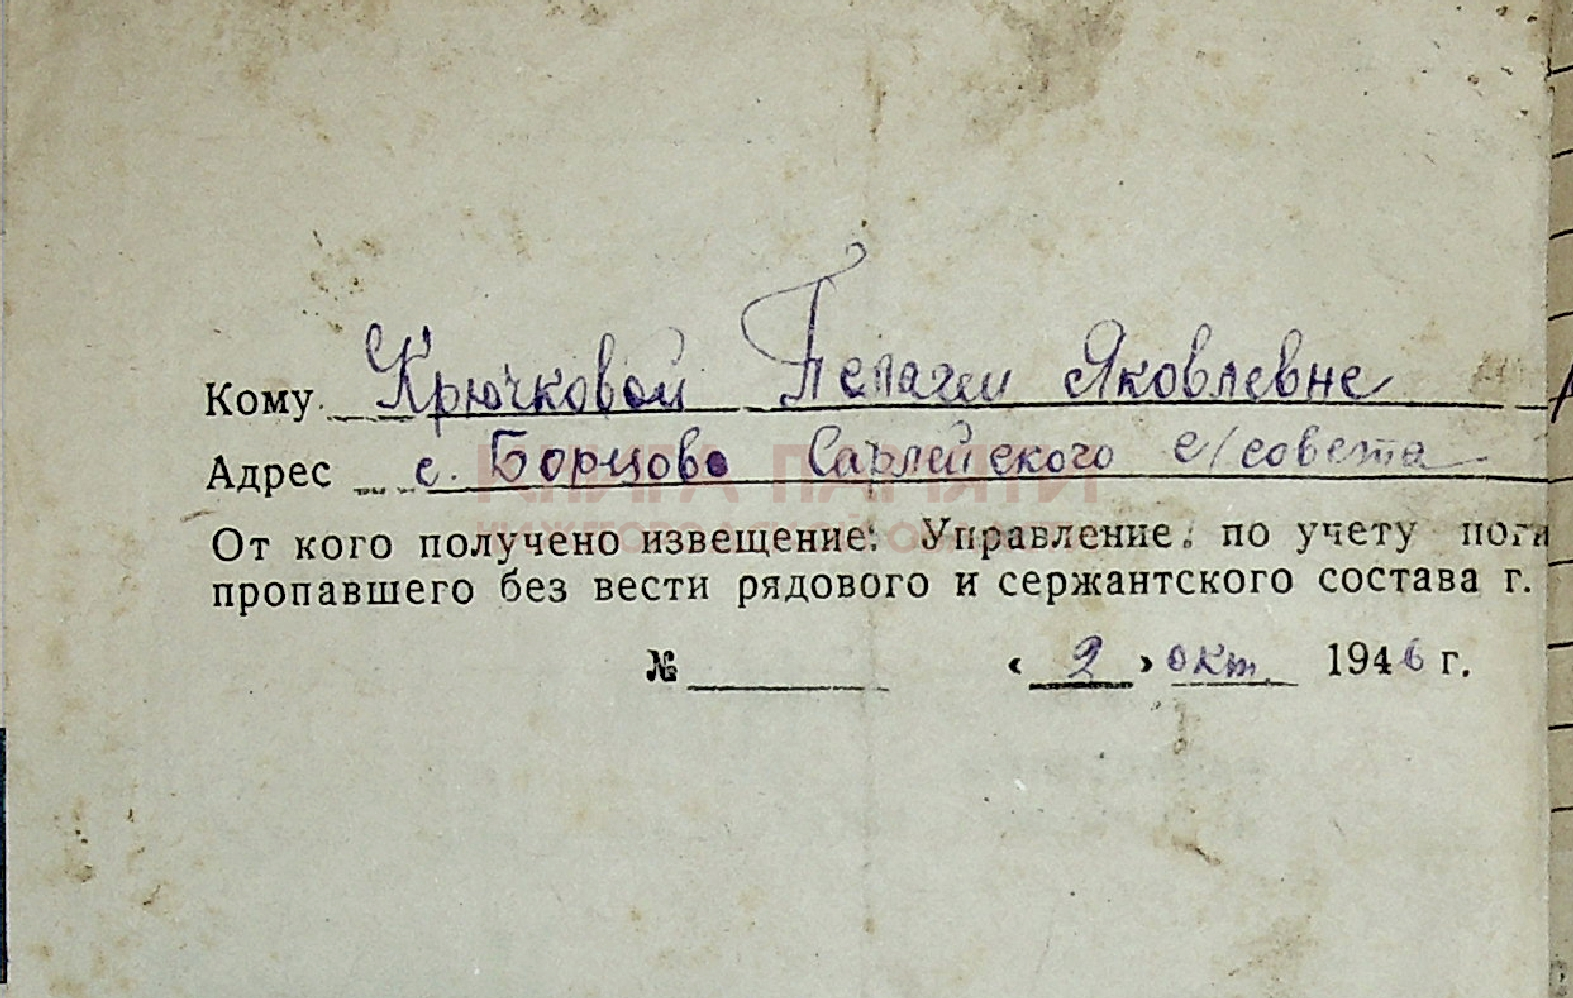 Кому Крючковой Пелагеи Яковлевне
Адрес с. Борцово Сарлейского с/совета
КНИГА ПАМЯТИ
От кого получено извещение: Управление по учету поги
пропавшего без вести рядового и сержантского состава г.
№ « 2 » окт. 1946 г.